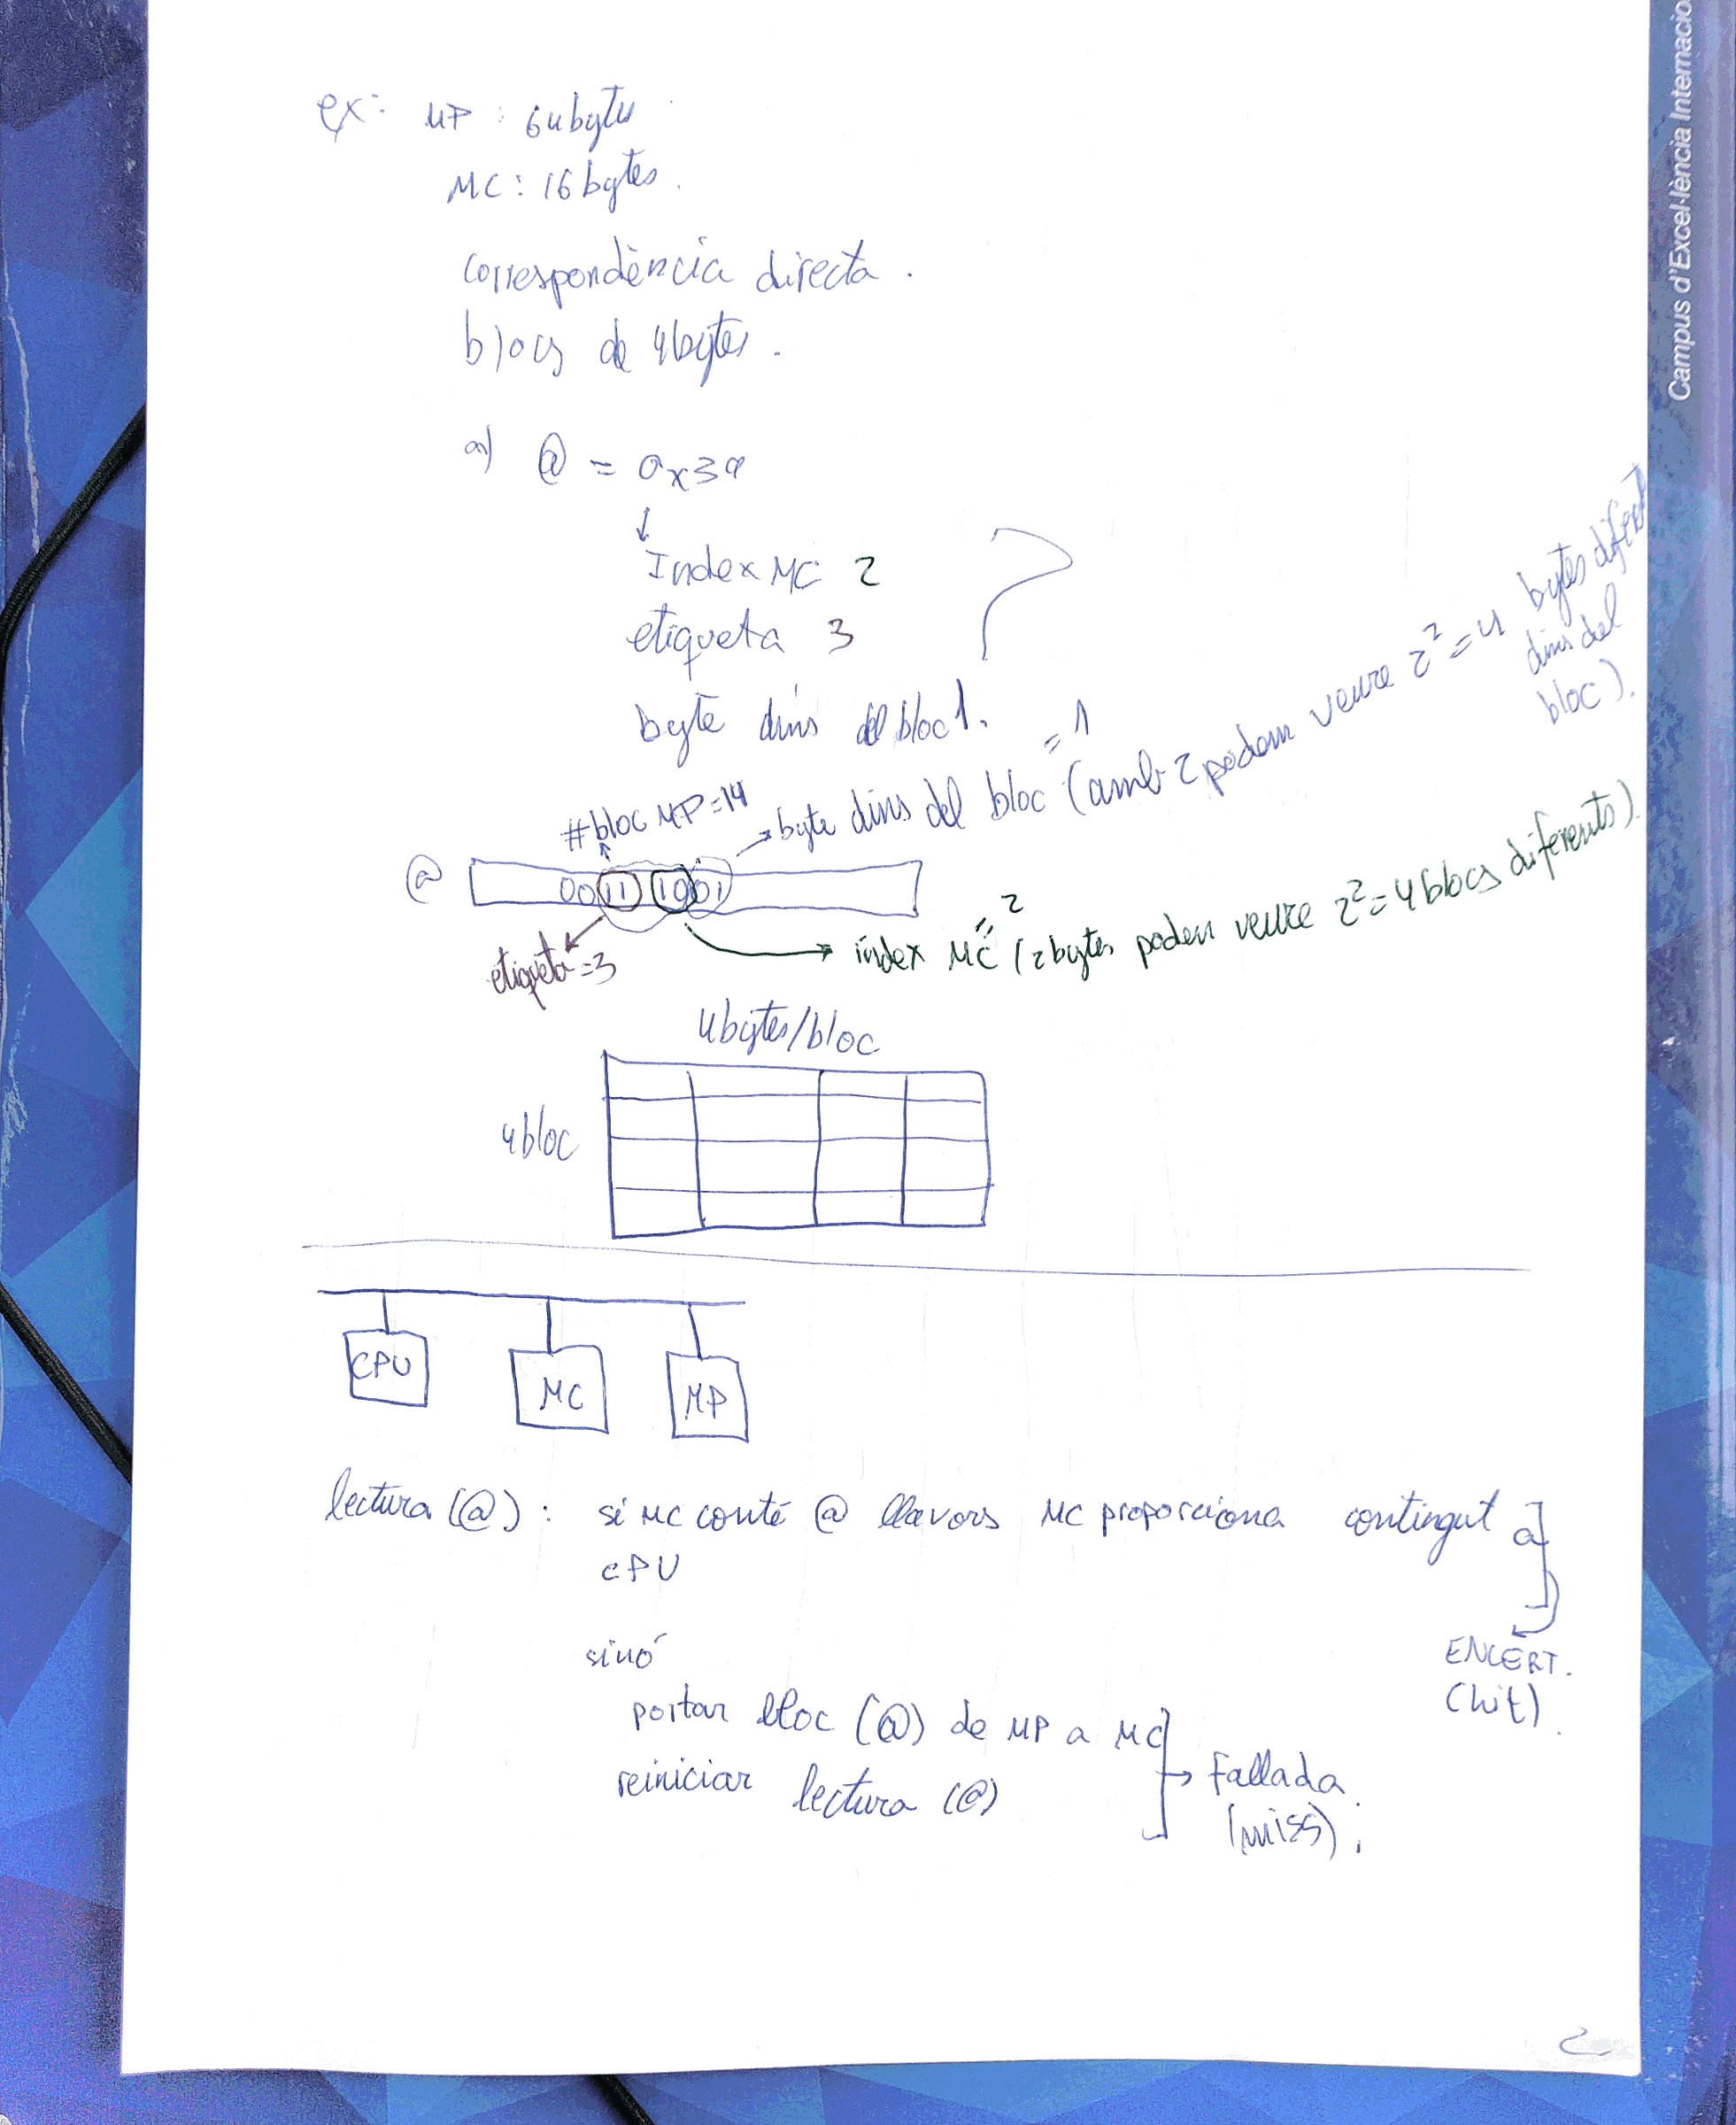 ex: MP : 64bytes
MC: 16 bytes.
correspondència directa.
blocs de 4bytes.
a) @ = 0x39
Index MC 2
etiqueta 3
byte dins del bloc 1.
#bloc MP=14
byte dins del bloc = 1 (amb 2 podem veure 2² = 4 bytes diferent
dins del
bloc).
@ 0011 1001
etiqueta=3
índex MC = 2 (2bytes podem veure 2²=4 blocs diferents).
4bytes/bloc
4bloc
CPU
MC
MP
lectura (@): si MC conté @ llavors MC proporciona contingut a
CPU
ENCERT.
(hit).
sinó
portar bloc (@) de MP a MC
reiniciar lectura (@)
Fallada
(miss);
2
Campus d'Excel·lència Internacio